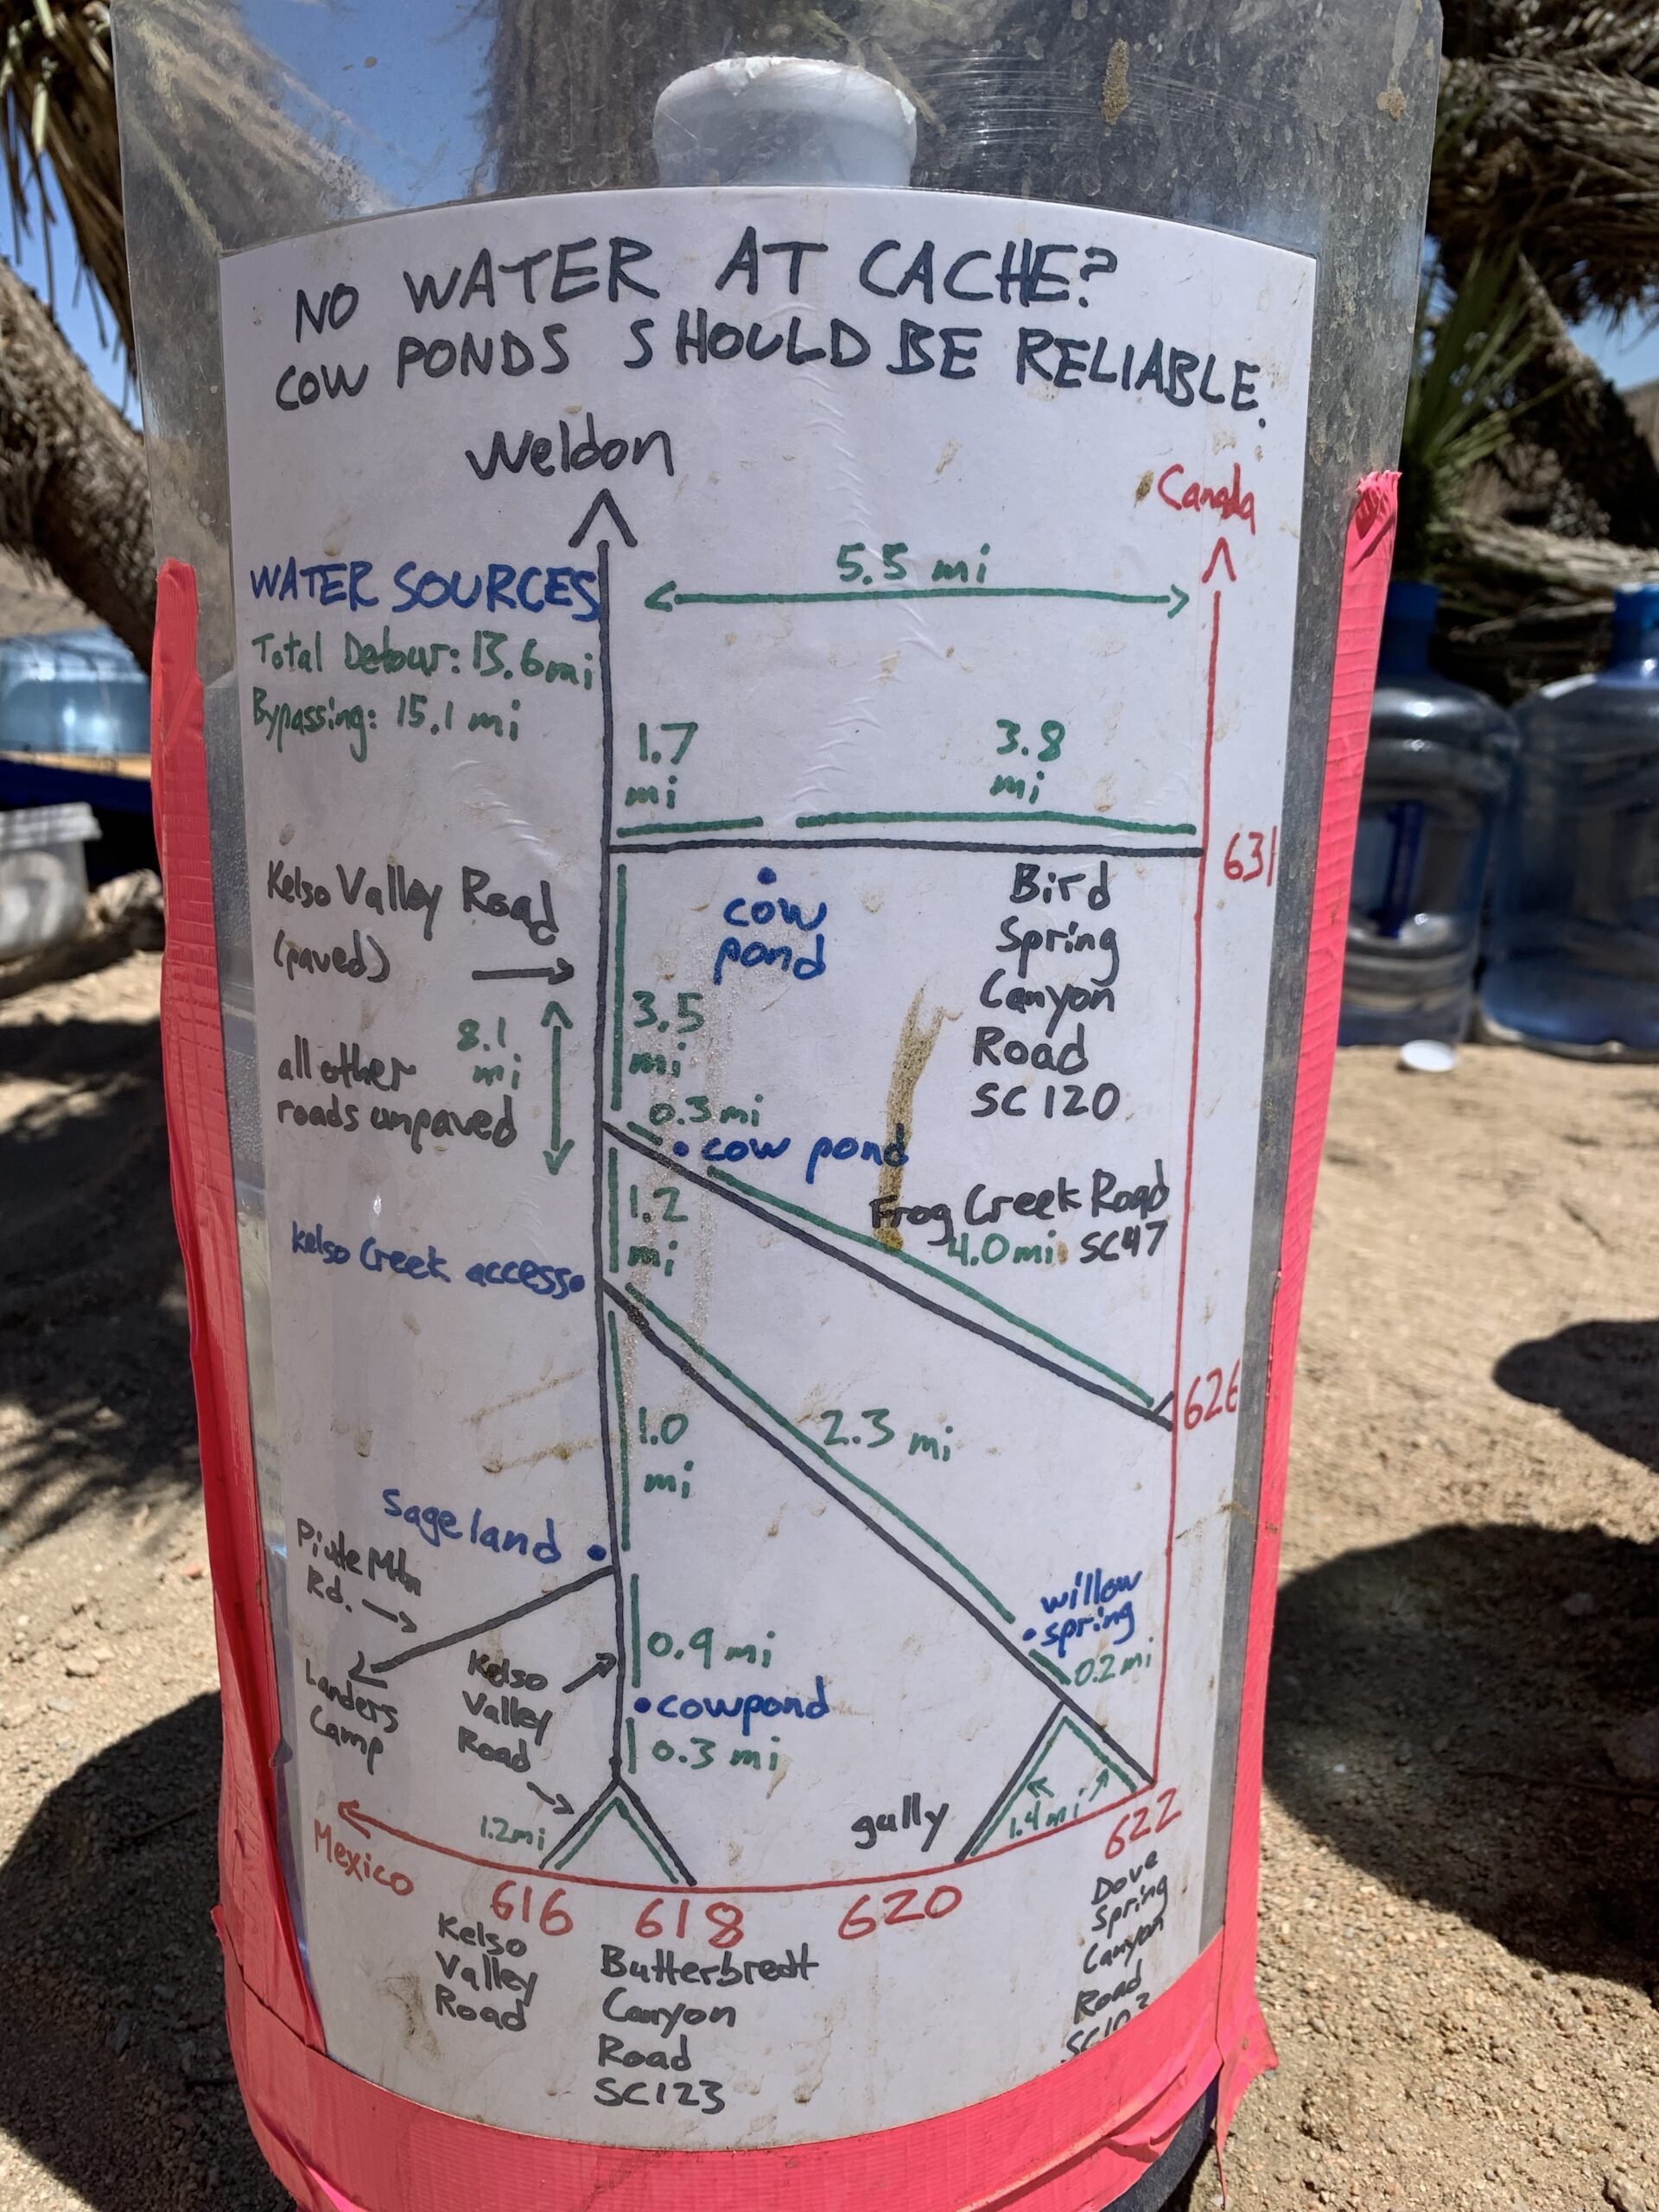 NO WATER AT CACHE?
COW PONDS SHOULD BE RELIABLE.
Weldon
Canada
WATER SOURCES
5.5 mi
Total Detour: 13.6mi
Bypassing: 15.1 mi
1.7
mi
3.8
mi
631
Kelso Valley Road
(paved)
cow
pond
Bird
Spring
Canyon
Road
SC 120
8.1
mi
3.5
mi
all other
roads unpaved
0.3mi
cow pond
1.2
mi
Frog Creek Road
4.0mi SC47
Kelso Creek access
626
1.0
mi
2.3 mi
Sageland
Piute Mtn
Rd.
willow
spring
0.2mi
0.9mi
Landers
Camp
Kelso
Valley
Road
cowpond
0.3 mi
1.2mi
gully
1.4mi
622
Mexico
616
618
620
Dove
Spring
Canyon
Road
Kelso
Valley
Road
Butterbredt
Canyon
Road
SC123